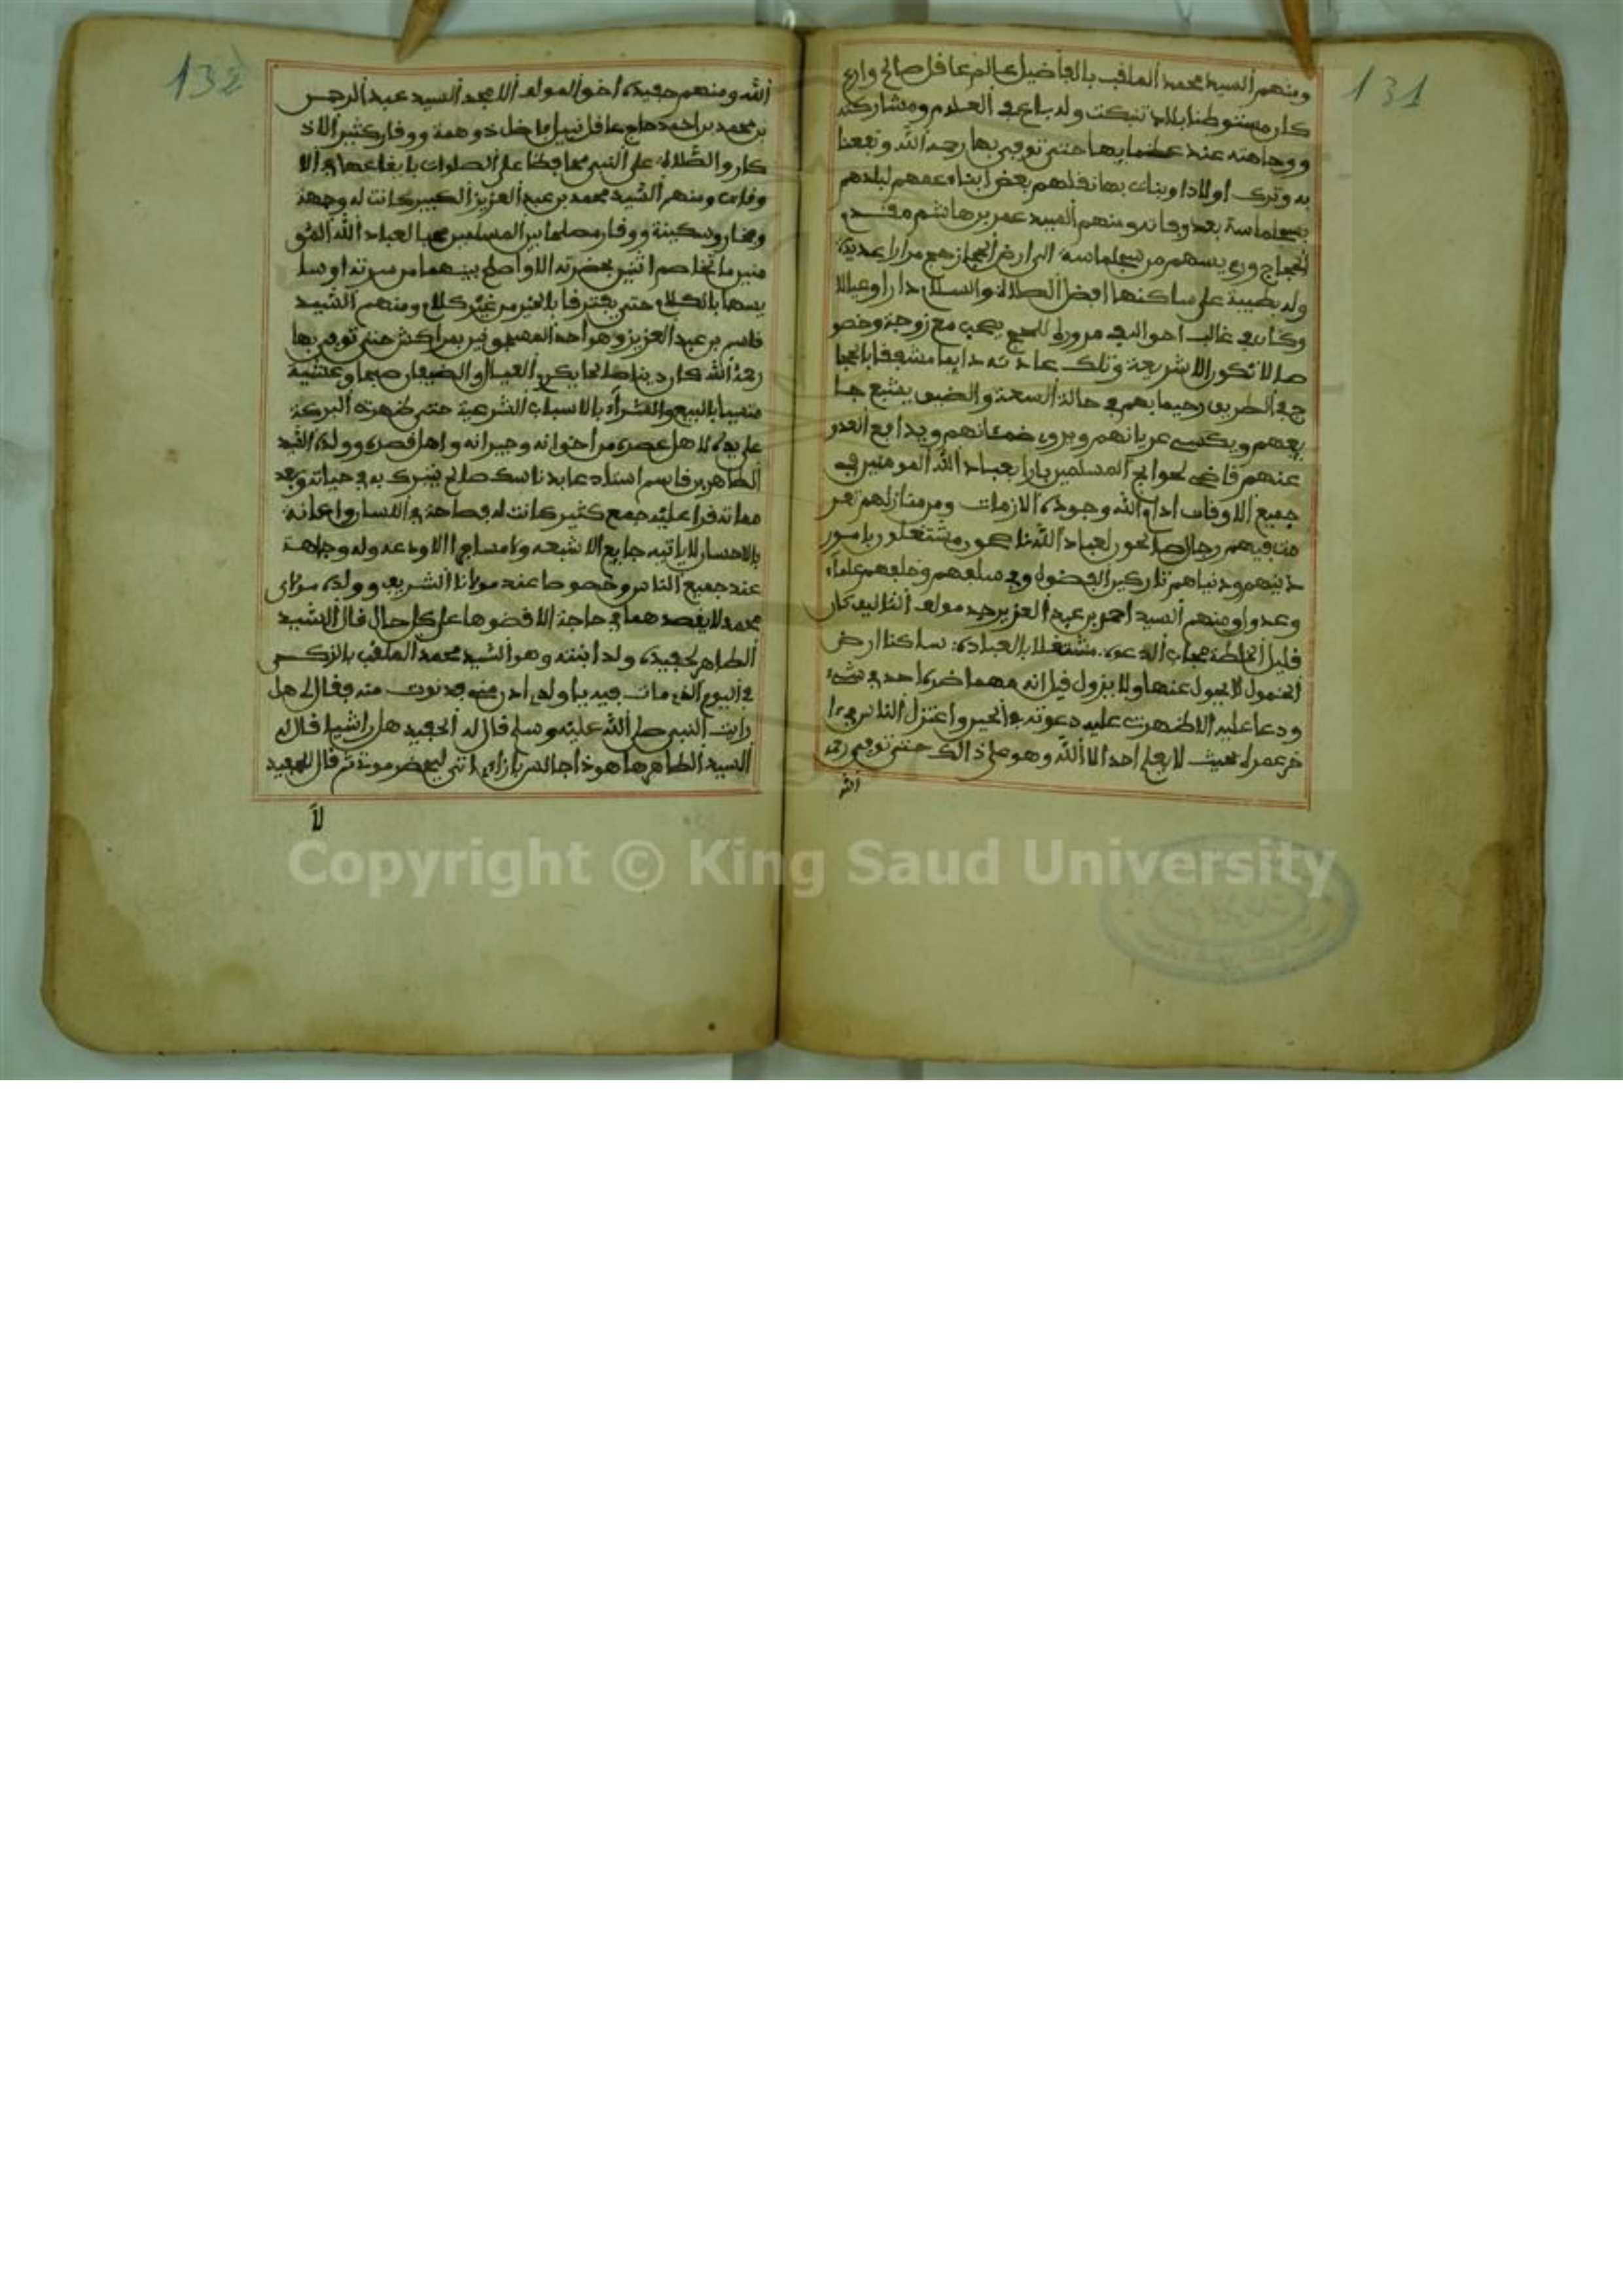 131
ومنهم السيد محمد الملقب بالفاضيل عالم عاقل صالح وارع
كان مستوطنا بلاد تنبكت وله باع في العلوم ومشاركة
ووجاهته عند عظمايها حتى توفي بها رحمه الله ونفعنا
به وترك اولادا وبنات بها نقلهم بعض ابناء عمهم لبلدهم
بسجلماسة بعد وفاته ومنهم السيد عمر بن هاشم مقدم
الحجاج وريسهم من سجلماسة الى ارض الحجاز حج مرارا عديدة
وله بطيبة على ساكنها افضل الصلاة والسلام دارا وعيالا
وكان في غالب احواله في مروره للحج يصحب مع زوجة وخصو
صا لا تكون الا شريفة وتلك عادته دايما مشفقا بالحجا
ج في الطريق رحيما بهم في حالة السعة والضيق يشبع جا
يعهم ويكسي عريانهم ويروي ضمئانهم ويدافع العدو
عنهم قاضي لحوايج المسلمين بارا بعباد الله المومنين في
جميع الاوقات ادام الله وجوده الازمات ومن منازلهم
فيهم رجال صالحون لعباد الله ناصحون مشتغلون بامور
دينهم ودنياهم تاركين الفضول وفي سلفهم وخلفهم علماء
وعدول ومنهم السيد احمد بن عبد العزيز جد مولف التاليف كان
قليل الخلطة مجاب الدعوة مشتغلا بالعبادة ساكنا ارض
الخمول لا يحول عنها ولا يزول قيل انه مهما ضره احد في شيء
ودعا عليه الا ظهرت عليه دعوته في الحين واعتزل الناس في ءا
خر عمره بحيث لا يعلم احد الا الله وهو على ذالك حتى توفي رحمه
الله
132
الله ومنهم حفيده اخو المولف الامجد السيد عبد الرحمن
بن محمد بن احمد حاج عاقل نبيل فاضل ذو همة ووقار كثير الاذ
كار والصلاة على النبي محافظا على الصلوات بايقاعها في الا
وقات ومنهم السيد محمد بن عبد العزيز الكبير كانت له وجهة
وسكينة ووقار مصلحا بين المسلمين محبا لعباد الله المو
منين ما تخاصم اثنين بحضرته الا واصلح بينهما من سرته او سا
يسها بالكلام حتى يفترقا بلاخير من غير كلام ومنهم السيد
قاسم بن عبد العزيز وهو احد المسجونين بمراكش حتى توفي بها
رحمة الله كان دينا صالحا يكرم العيال والضيفان صبحا وعشية
متسببا بالبيع والشراء بالاسباب الشرعية حتى ظهرت البركة
على يده لاهل عصره من اخوانه وجيرانه واهل قصره وولده السيد
الطاهر بن قاسم استاذ عابد ناسك صالح يتبرك به في حياته وبعد
مماته قرا عليه جمع كثير كانت له فصاحة في اللسان واعانة
بالاحسان لا ياتيه جايع الا شبعه ولا مسافر الا ودعه وله وجاهة
عند جميع الناس وخصوصا عند مولانا الشريف وولده مولاي
محمد لا يقصدهما في حاجة الا قضوها على كل حال قال السيد
الطاهر لحفيده ولد ابنته وهو السيد محمد الملقب بالزكي
في اليوم الذي مات فيه يا ولدي ادن مني فدنوت منه فقال لي هل
رايت النبي صلى الله عليه وسلم قال له الحفيد هل رايته قال له
السيد الطاهر ها هو ذا جالس بازاي اتى ليحضر موتي ثم قال للحفيد
لا
Copyright © King Saud University